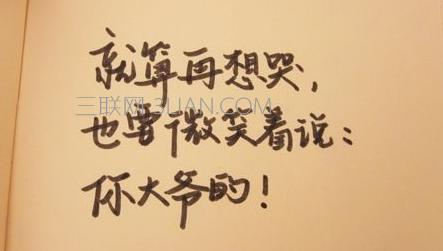 就算再想哭，
三联网 3LIAN.COM
也要微笑着说：
你大爷的！